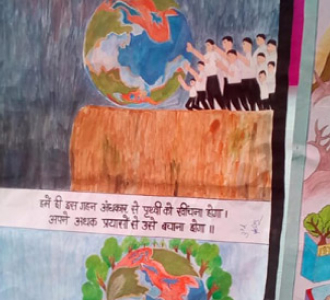 हमें ही इस गहन अंधकार से पृथ्वी को खींचना होगा।
अपने अथक प्रयासों से उसे बचाना होगा॥